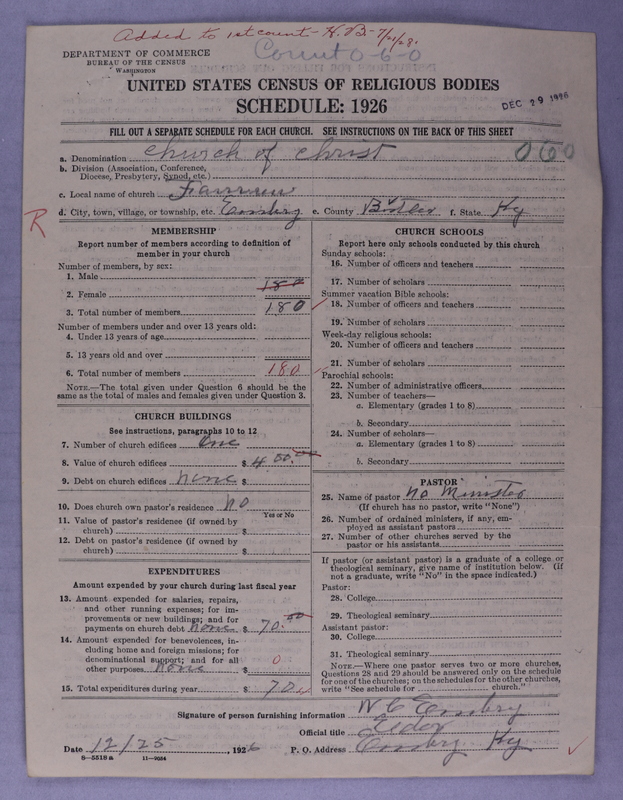 Added to 1st count - H.B- 7/21/28.
Count 0-6-0
DEPARTMENT OF COMMERCE
BUREAU OF THE CENSUS
WASHINGTON
UNITED STATES CENSUS OF RELIGIOUS BODIES
SCHEDULE: 1926
DEC 29 1926
FILL OUT A SEPARATE SCHEDULE FOR EACH CHURCH. SEE INSTRUCTIONS ON THE BACK OF THIS SHEET
a. Denomination Church of Christ 060
b. Division (Association, Conference,
Diocese, Presbytery, Synod, etc.)
c. Local name of church
R
d. City, town, village, or township, etc. Embry e. County Butler f. State Ky
MEMBERSHIP
Report number of members according to definition of
member in your church
Number of members, by sex:
1. Male
2. Female 180
3. Total number of members 180
Number of members under and over 13 years old:
4. Under 13 years of age
5. 13 years old and over
6. Total number of members 180
NOTE.—The total given under Question 6 should be the
same as the total of males and females given under Question 3.
CHURCH BUILDINGS
See instructions, paragraphs 10 to 12
7. Number of church edifices one
8. Value of church edifices $400.00
9. Debt on church edifices none $
10. Does church own pastor's residence no
Yes or No
11. Value of pastor's residence (if owned by
church) $
12. Debt on pastor's residence (if owned by
church) $
EXPENDITURES
Amount expended by your church during last fiscal year
13. Amount expended for salaries, repairs,
and other running expenses; for im-
provements or new buildings; and for
payments on church debt none $ 70.00
14. Amount expended for benevolences, in-
cluding home and foreign missions; for
denominational support; and for all 0
other purposes none $
15. Total expenditures during year $ 70
CHURCH SCHOOLS
Report here only schools conducted by this church
Sunday schools:
16. Number of officers and teachers
17. Number of scholars
Summer vacation Bible schools:
18. Number of officers and teachers
19. Number of scholars
Week-day religious schools:
20. Number of officers and teachers
21. Number of scholars
Parochial schools:
22. Number of administrative officers
23. Number of teachers—
a. Elementary (grades 1 to 8)
b. Secondary
24. Number of scholars—
a. Elementary (grades 1 to 8)
b. Secondary
PASTOR
25. Name of pastor no Minister
(If church has no pastor, write "None")
26. Number of ordained ministers, if any, em-
ployed as assistant pastors
27. Number of other churches served by the
pastor or his assistants
If pastor (or assistant pastor) is a graduate of a college or
theological seminary, give name of institution below. (If
not a graduate, write "No" in the space indicated.)
Pastor:
28. College
29. Theological seminary
Assistant pastor:
30. College
31. Theological seminary
NOTE.—Where one pastor serves two or more churches,
Questions 28 and 29 should be answered only on the schedule
for one of the churches; on the schedules for the other churches,
write "See schedule for church."
Signature of person furnishing information W C Embry
Official title Elder
Date 12/25, 1926 P. O. Address Embry Ky
8—5518a 11—9054